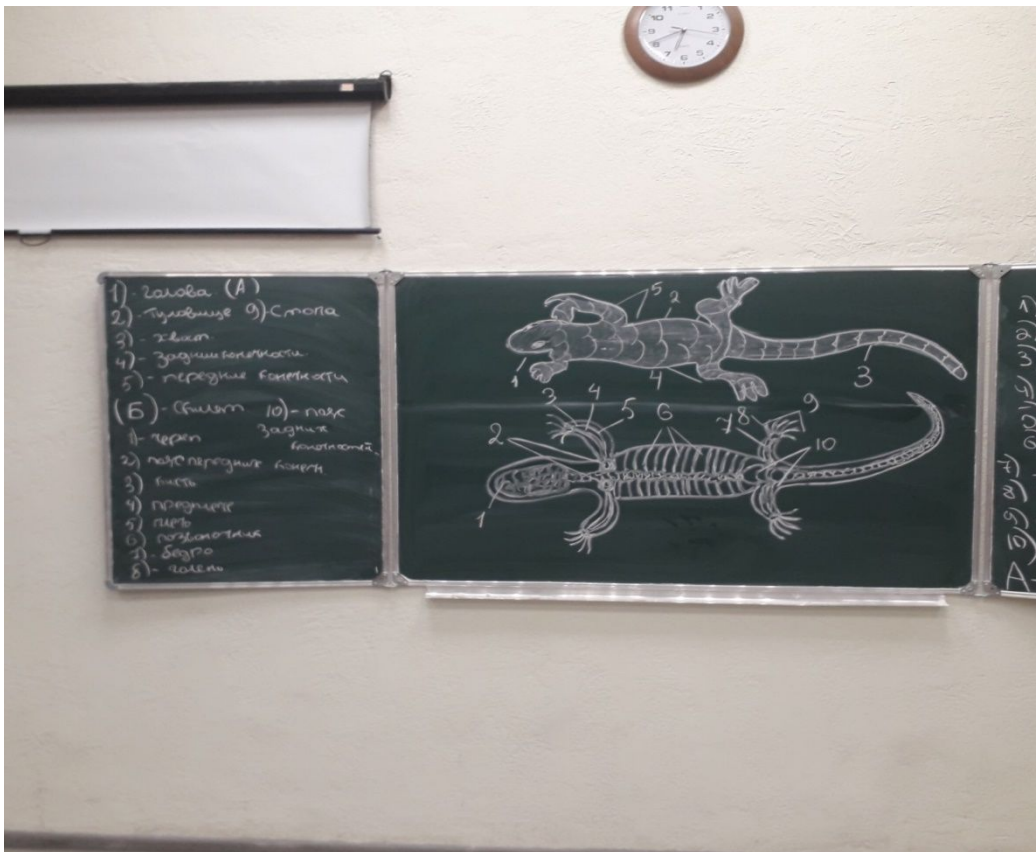 1)- голова (А)
2)- туловище 9)-Стопа
3)- хвост
4)- задние конечности
5)- передние конечности
(Б)- Скелет 10)- пояс
задних
конечностей
1- череп
2) пояс передних конечн
3) кисть
4) предплече
5) плечь
6) позвоночник
7)- бедро
8)- голень
5 2
1 4 3
3 4 5 6 7 8 9
2 10
1
10 11 12 1 2 3 4 5 6 7 8 9